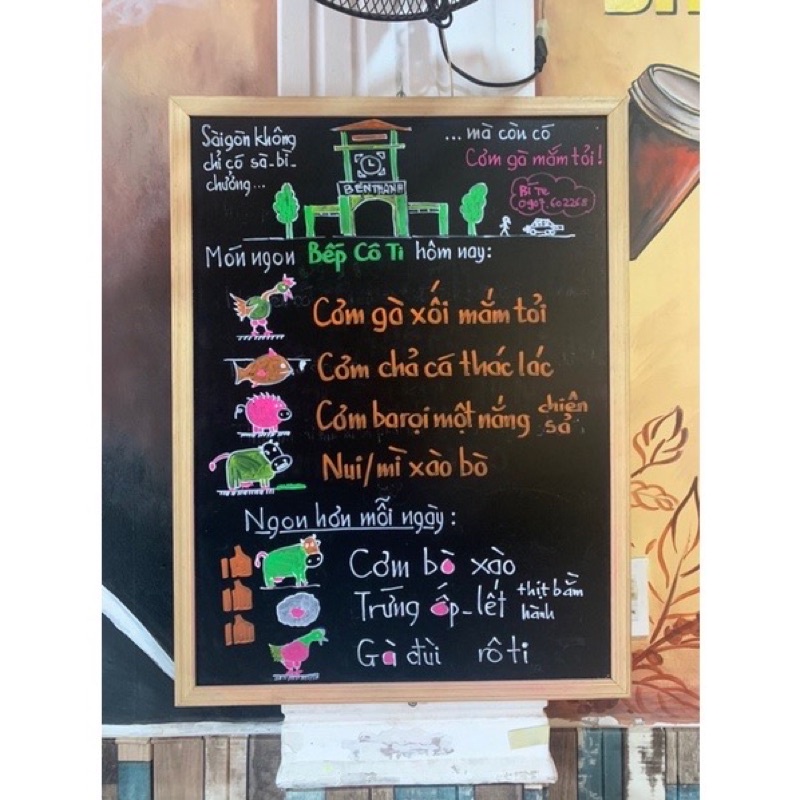 Sài gòn không
chỉ có sà-bì-
chưởng...
... mà còn có
Cơm gà mắm tỏi!
BẾN THÀNH
Bí Tư
0907.602268
Món ngon Bếp Cô Ti hôm nay:
Cơm gà xối mắm tỏi
Cơm chả cá thác lác
Cơm ba rọi một nắng chiên sả
Nui/mì xào bò
Ngon hơn mỗi ngày:
Cơm bò xào
Trứng ốp-lết thịt bằm hành
Gà đùi rôti